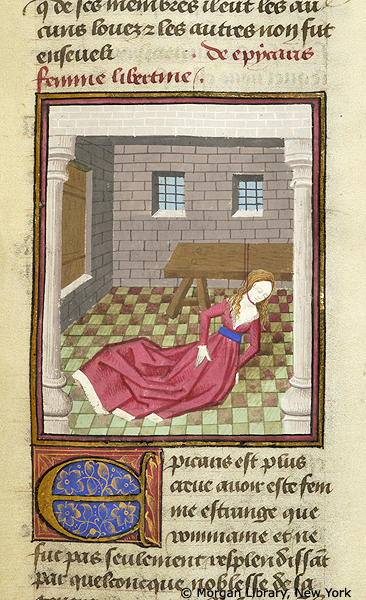 de ses membres ileut les au
cuns louez & les autres non fut
enseueli de epycaris
femme libertine.
Epicaris est plus
creue auoir este fem
me estrange que
rommaine et ne
fut pas seulement resplendissãt
par quelconcque noblesse de sa
© Morgan Library, New York